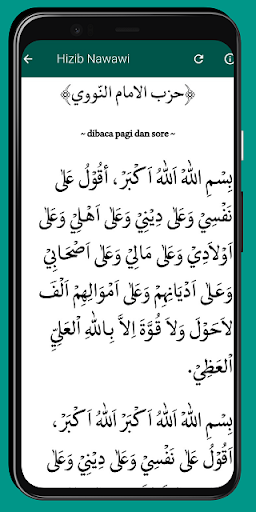 Hizib Nawawi
﴿حزب الامام النّووي﴾
~ dibaca pagi dan sore ~
بِسْمِ اللهْ اَللهُ اَكْبَرْ، أقُوْلُ عَلىٰ
نَفْسِيْ وَعَلىٰ دِيْنِيْ وَعَلىٰ اَهْلِيْ وَعَلىٰ
اَوْلَادِيْ وَعَلىٰ مَالِيْ وَعَلىٰ اَصْحَابِيْ
وَعَلىٰ اَدْيَانِهِمْ وَعَلىٰ اَمْوَالِهِمْ اَلْفَ
لَاحَوْلَ وَلَا قُوَّةَ اِلاَّ بِاللهِ اْلعَلِيِّ
اْلعَظِيْ.
بِسْمِ اللهْ اَللهُ اَكْبَرُ اَللهُ اَكْبَرْ،
اَقُوْلُ عَلىٰ نَفْسِيْ وَعَلىٰ دِيْنِيْ
وَعَلىٰ اَهْلِيْ وَعَلىٰ اَوْلَادِيْ وَعَلىٰ